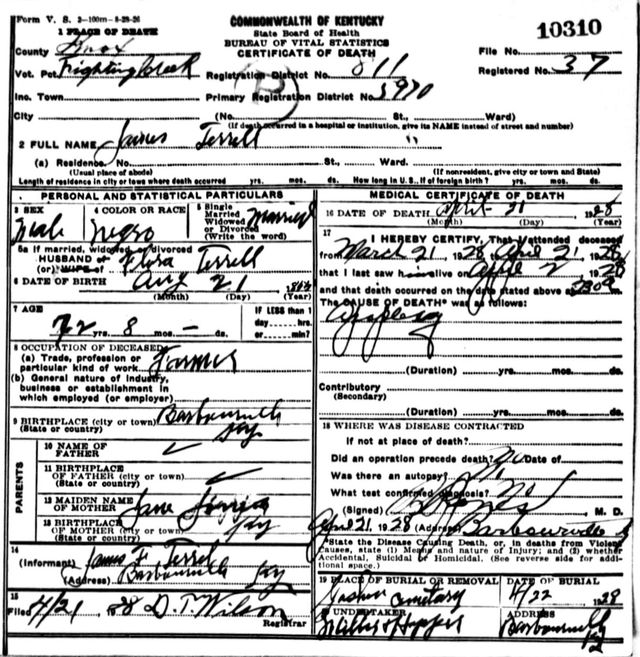 Form V. S. 2-100m-8-28-26
1 PLACE OF DEATH
COMMONWEALTH OF KENTUCKY
State Board of Health
BUREAU OF VITAL STATISTICS
CERTIFICATE OF DEATH
10310
County Knox
File No.
Vot. Pct. Registration District No. 811
Registered No. 37
Inc. Town Primary Registration District No. 5970
City (No. St. Ward)
(If death occurred in a hospital or institution, give its NAME instead of street and number)
2 FULL NAME James Terrell
(a) Residence. No. St., Ward.
(Usual place of abode) (If nonresident, give city or town and State)
Length of residence in city or town where death occurred yrs. mos. ds. How long in U.S., if of foreign birth? yrs. mos. ds.
PERSONAL AND STATISTICAL PARTICULARS
3 SEX Male
4 COLOR OR RACE Negro
5 Single Married Widowed or Divorced (Write the word) Married
5a If married, widowed, or divorced
HUSBAND of Flora Terrell
(or) WIFE of
6 DATE OF BIRTH Aug 21
(Month) (Day) (Year)
7 AGE
72 yrs. 8 mos. - ds.
IF LESS than 1 day hrs. or min?
8 OCCUPATION OF DECEASED
(a) Trade, profession or particular kind of work Farmer
(b) General nature of industry, business or establishment in which employed (or employer)
9 BIRTHPLACE (city or town) Barbourville
(State or country) Ky
PARENTS
10 NAME OF FATHER ✓
11 BIRTHPLACE OF FATHER (city or town) ✓
(State or country)
12 MAIDEN NAME OF MOTHER Jane
13 BIRTHPLACE OF MOTHER (city or town) Ky
(State or country)
14
(Informant) James F Terrell
(Address) Barbourville Ky
15
Filed 4/21 28 D. T. Wilson
Registrar
MEDICAL CERTIFICATE OF DEATH
16 DATE OF DEATH April 21 1928
(Month) (Day) (Year)
17
I HEREBY CERTIFY, That I attended deceased
from March 21, 1928, April 21, 1928
that I last saw him alive on 1928
and that death occurred on the date stated above at
The CAUSE OF DEATH* was as follows:
Apoplexy
(Duration) yrs. mos. ds.
Contributory
(Secondary)
(Duration) yrs. mos. ds.
18 WHERE WAS DISEASE CONTRACTED
If not at place of death?
Did an operation precede death? No
Was there an autopsy?
What test confirmed diagnosis?
(Signed) M. D.
April 21, 1928 (Address) Barbourville
*State the Disease Causing Death, or, in deaths from Violent
Causes, state (1) Means and nature of Injury; and (2) whether
Accidental, Suicidal or Homicidal. (See reverse side for addi-
tional space.)
19 PLACE OF BURIAL OR REMOVAL Cemetary
DATE OF BURIAL 4/22 1928
20 UNDERTAKER
ADDRESS Barbourville